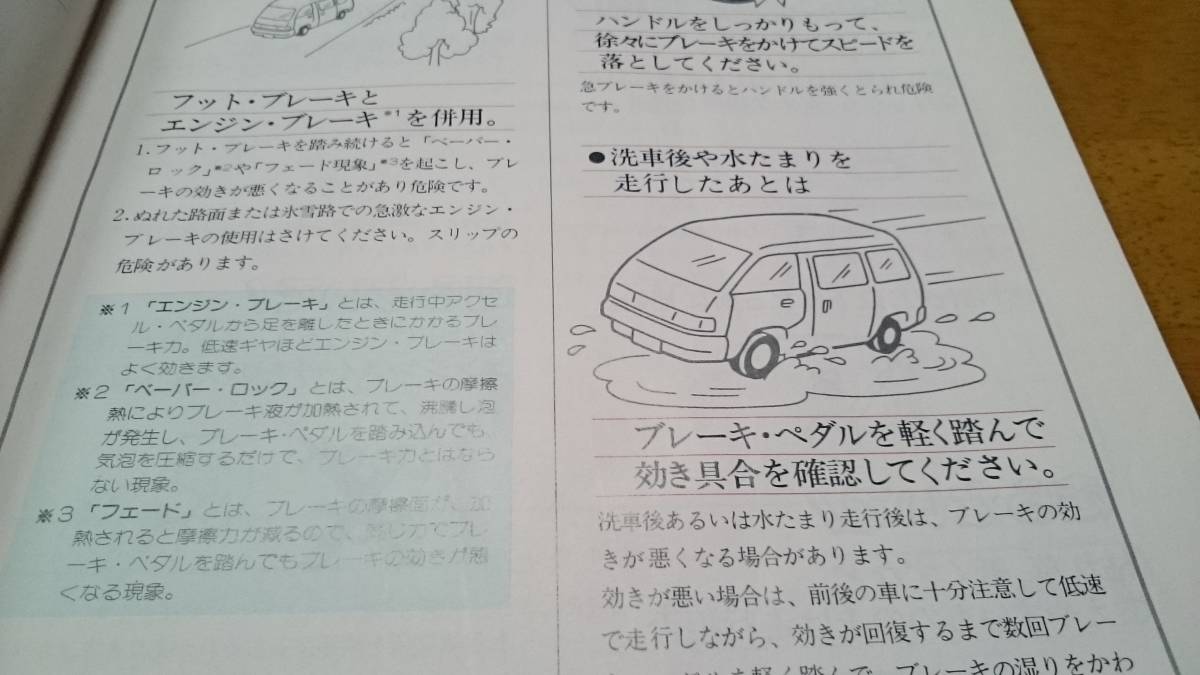 フット・ブレーキと
エンジン・ブレーキ※1を併用。
1. フット・ブレーキを踏み続けると「ベーパー・
ロック」※2や「フェード現象」※3を起こし、ブレ
ーキの効きが悪くなることがあり危険です。
2. ぬれた路面または氷雪路での急激なエンジン・
ブレーキの使用はさけてください。スリップの
危険があります。
※1 「エンジン・ブレーキ」とは、走行中アクセ
ル・ペダルから足を離したときにかかるブレ
ーキ力。低速ギヤほどエンジン・ブレーキは
よく効きます。
※2 「ベーパー・ロック」とは、ブレーキの摩擦
熱によりブレーキ液が加熱されて、沸騰し泡
が発生し、ブレーキ・ペダルを踏み込んでも、
気泡を圧縮するだけで、ブレーキ力とはなら
ない現象。
※3 「フェード」とは、ブレーキの摩擦面が、加
熱されると摩擦力が減るので、同じ力でブレ
ーキ・ペダルを踏んでもブレーキの効きが悪
くなる現象。
ハンドルをしっかりもって、
徐々にブレーキをかけてスピードを
落としてください。
急ブレーキをかけるとハンドルを強くとられ危険
です。
●洗車後や水たまりを
走行したあとは
ブレーキ・ペダルを軽く踏んで
効き具合を確認してください。
洗車後あるいは水たまり走行後は、ブレーキの効
きが悪くなる場合があります。
効きが悪い場合は、前後の車に十分注意して低速
で走行しながら、効きが回復するまで数回ブレー
を軽く踏んで、ブレーキの湿りをかわ